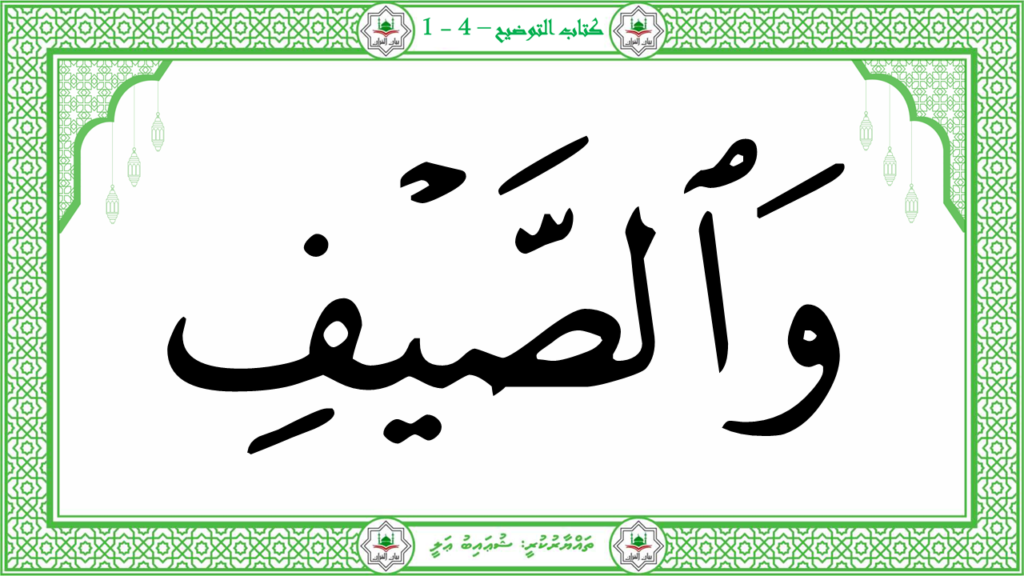 كتاب التوضيح – 4 - 1
وَٱلصَّيۡفِ
ތައްޔާރުކުރީ: ޝުޢައިބު ޢަލީ